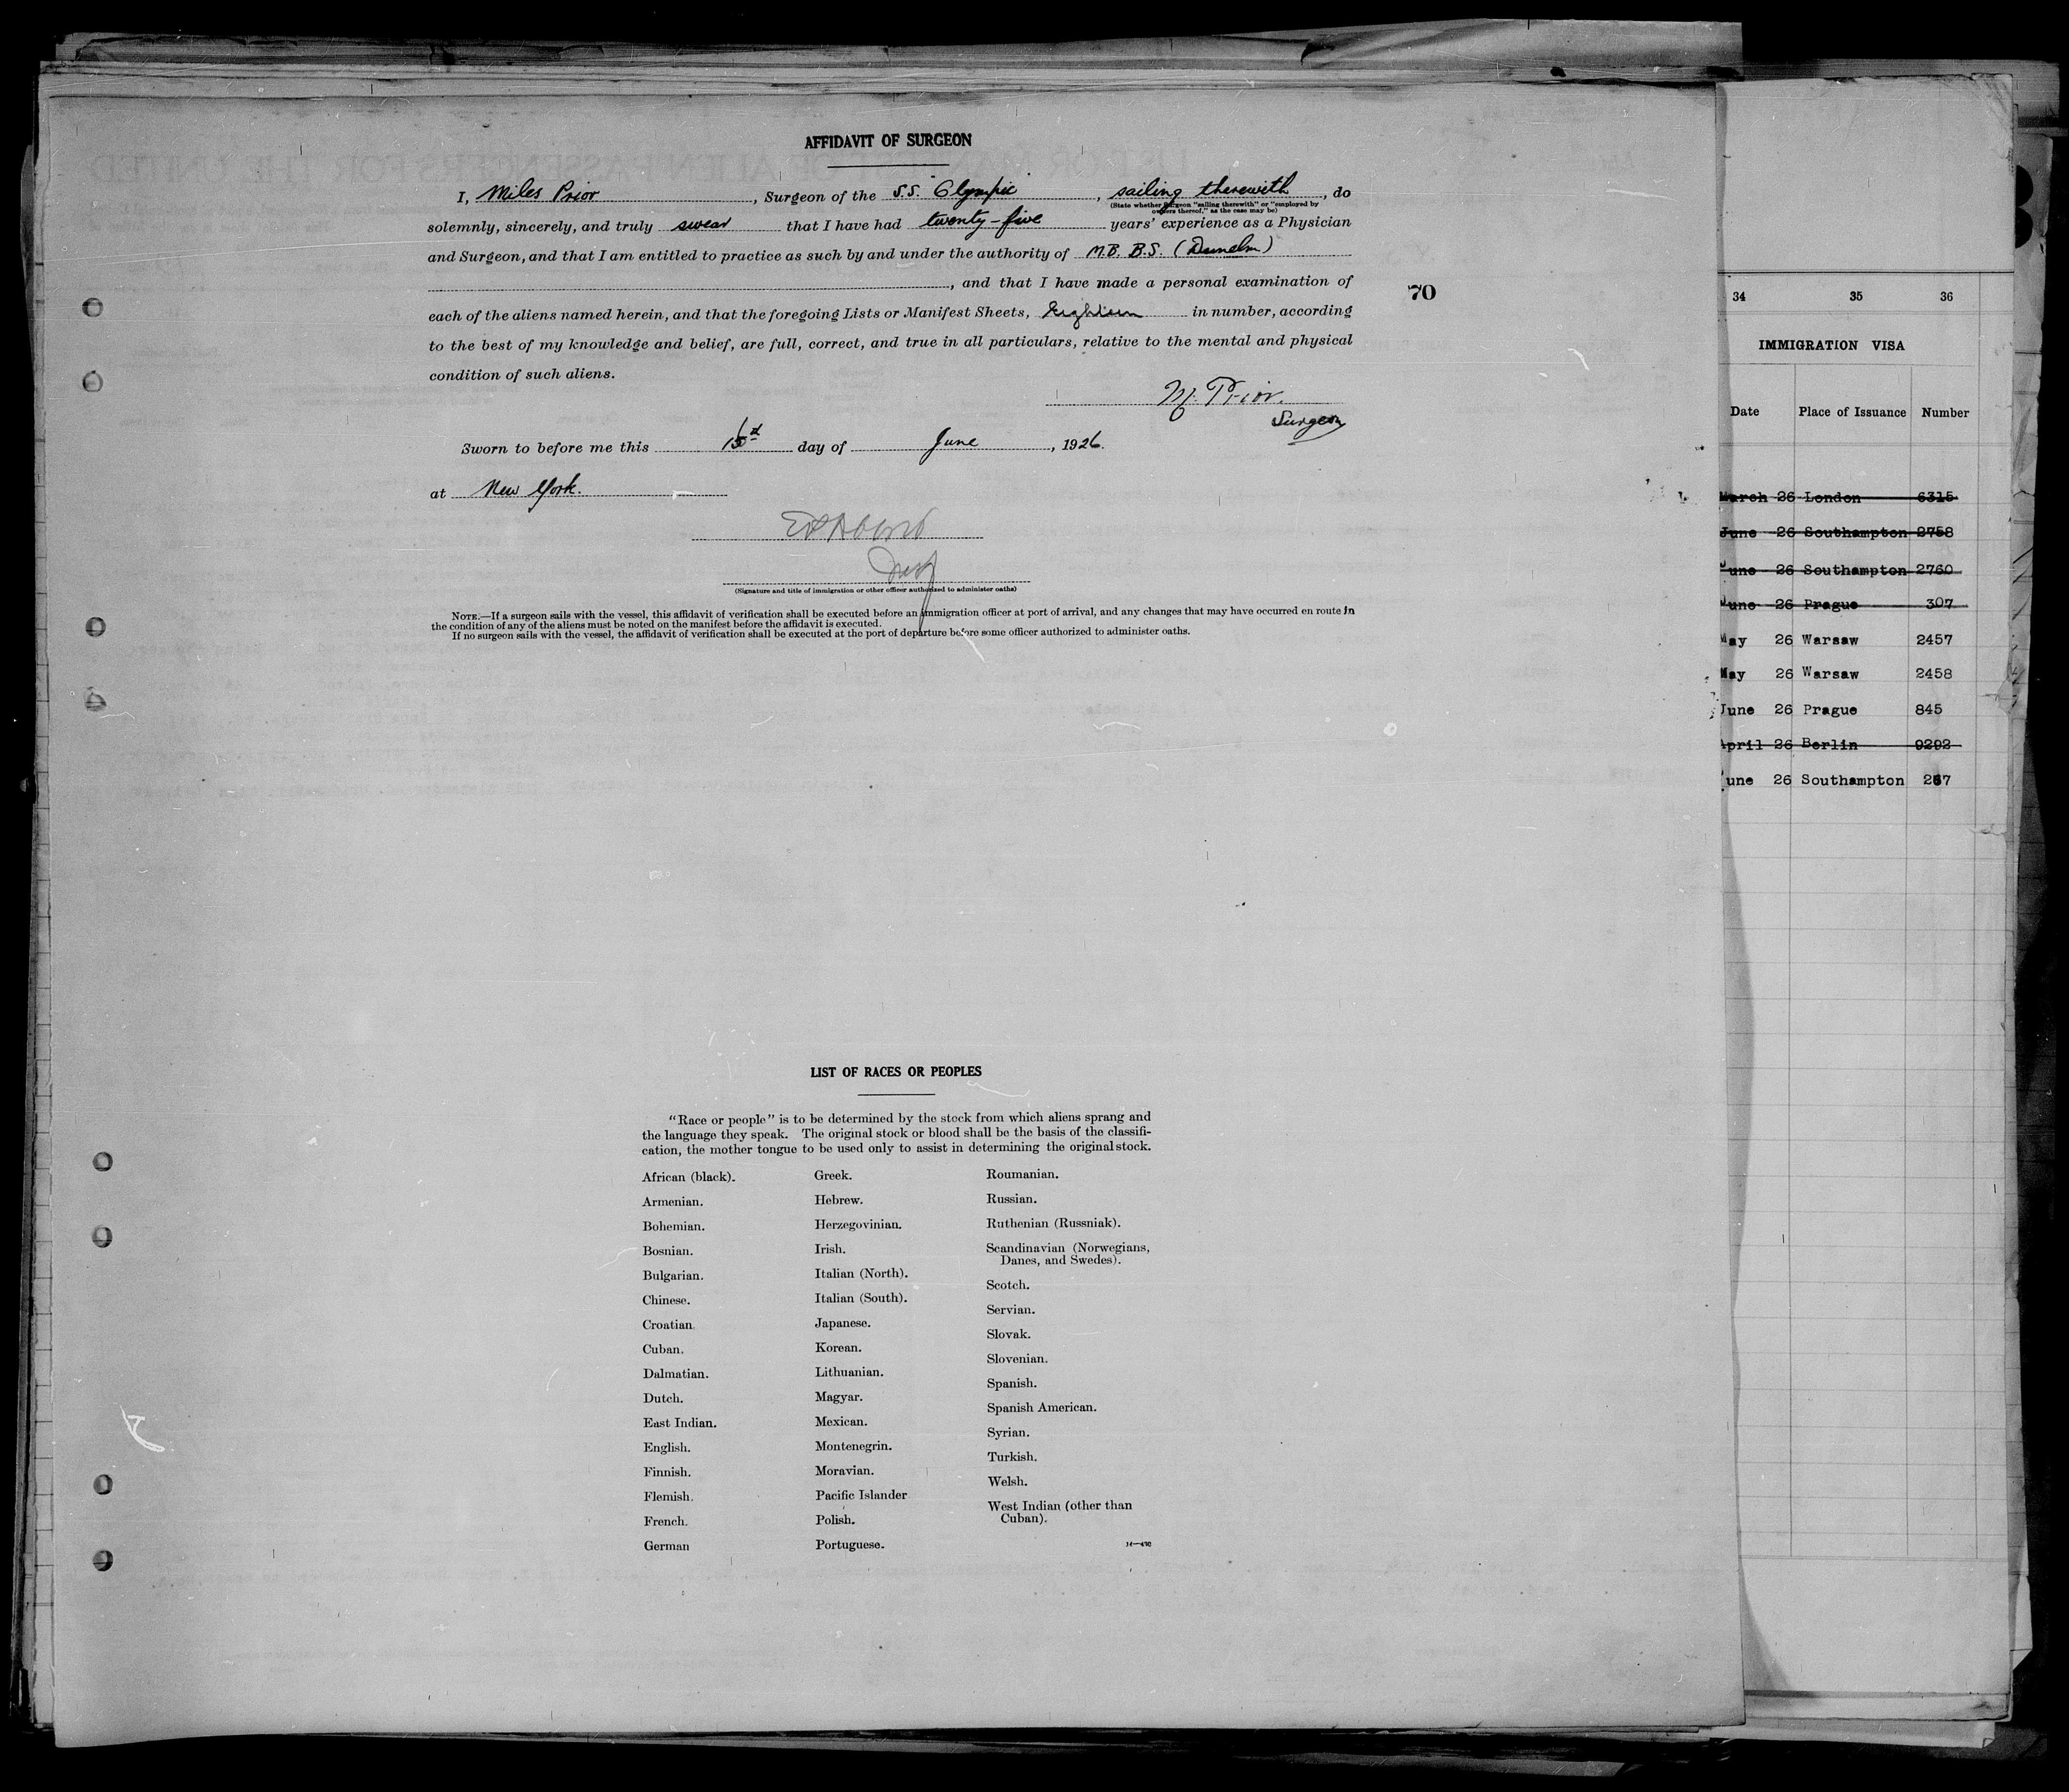 AFFIDAVIT OF SURGEON
I, Miles Prior, Surgeon of the S.S. "Olympic", sailing therewith, do
(State whether Surgeon "sailing therewith" or "employed by
owners thereof," as the case may be)
solemnly, sincerely, and truly swear that I have had twenty-five years' experience as a Physician
and Surgeon, and that I am entitled to practice as such by and under the authority of M.B. B.S. (Dunelm)
, and that I have made a personal examination of
70
each of the aliens named herein, and that the foregoing Lists or Manifest Sheets, Eighteen in number, according
to the best of my knowledge and belief, are full, correct, and true in all particulars, relative to the mental and physical
condition of such aliens.
M. Prior.
Surgeon
Sworn to before me this day of June, 1926.
at New York.
(Signature and title of immigration or other officer authorized to administer oaths)
NOTE.—If a surgeon sails with the vessel, this affidavit of verification shall be executed before an immigration officer at port of arrival, and any changes that may have occurred en route in
the condition of any of the aliens must be noted on the manifest before the affidavit is executed.
If no surgeon sails with the vessel, the affidavit of verification shall be executed at the port of departure before some officer authorized to administer oaths.
LIST OF RACES OR PEOPLES
"Race or people" is to be determined by the stock from which aliens sprang and
the language they speak. The original stock or blood shall be the basis of the classifi-
cation, the mother tongue to be used only to assist in determining the original stock.
African (black).
Armenian.
Bohemian.
Bosnian.
Bulgarian.
Chinese.
Croatian.
Cuban.
Dalmatian.
Dutch.
East Indian.
English.
Finnish.
Flemish.
French.
German
Greek.
Hebrew.
Herzegovinian.
Irish.
Italian (North).
Italian (South).
Japanese.
Korean.
Lithuanian.
Magyar.
Mexican.
Montenegrin.
Moravian.
Pacific Islander
Polish.
Portuguese.
Roumanian.
Russian.
Ruthenian (Russniak).
Scandinavian (Norwegians,
Danes, and Swedes).
Scotch.
Servian.
Slovak.
Slovenian.
Spanish.
Spanish American.
Syrian.
Turkish.
Welsh.
West Indian (other than
Cuban).
34 35 36
IMMIGRATION VISA
Date Place of Issuance Number
March 26 London 6315
June 26 Southampton 2758
June 26 Southampton 2760
June 26 Prague 307
May 26 Warsaw 2457
May 26 Warsaw 2458
June 26 Prague 845
April 26 Berlin 9292
June 26 Southampton